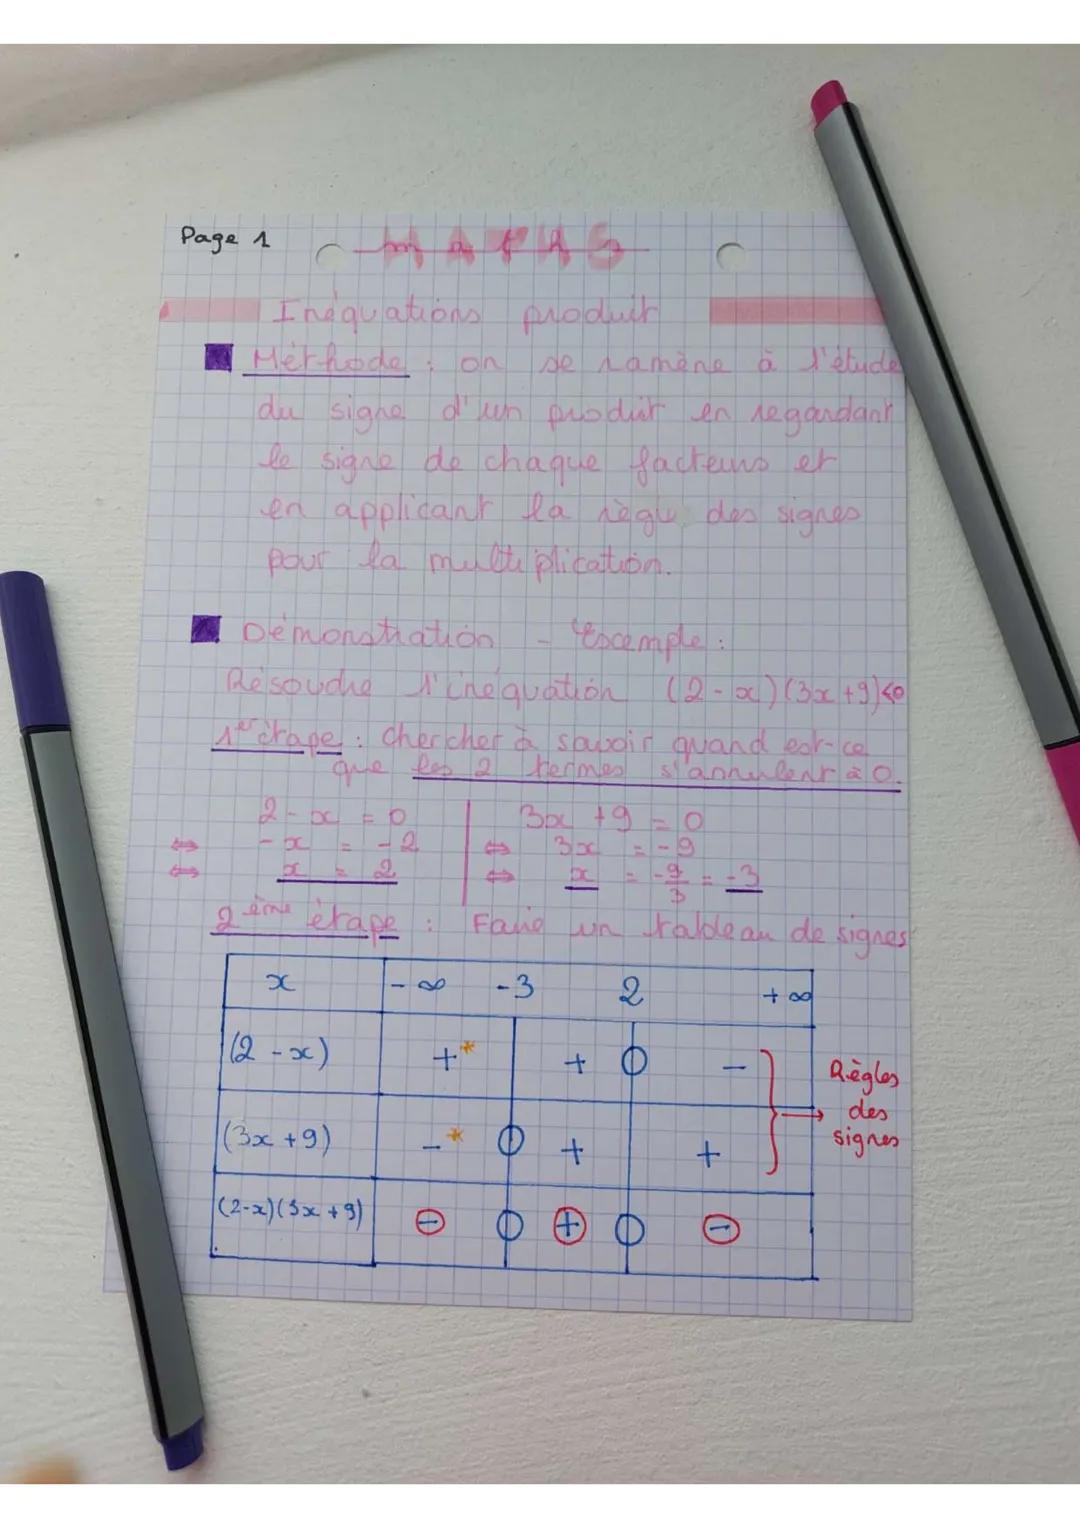 Page 1
maths
Inéquations produit
Méthode : on se ramène à l'étude
du signe d'un produit en regardant
le signe de chaque facteurs et
en applicant la règle des signes
pour la multiplication.
Démonstration - Exemple :
Résoudre l'inéquation (2-x)(3x+9)<0
1er étape : chercher à savoir quand est-ce
que les 2 termes s'annulent à 0.
2-x = 0 | 3x +9 = 0
⇔ -x = -2 | ⇔ 3x = -9
⇔ x = 2 | ⇔ x = -9/3 = -3
2ème étape : Faire un tableau de signes
x -∞ -3 2 +∞
(2-x) +* + 0 -
(3x+9) -* 0 + +
(2-x)(3x+9) - 0 + 0 -
Règles
des
signes